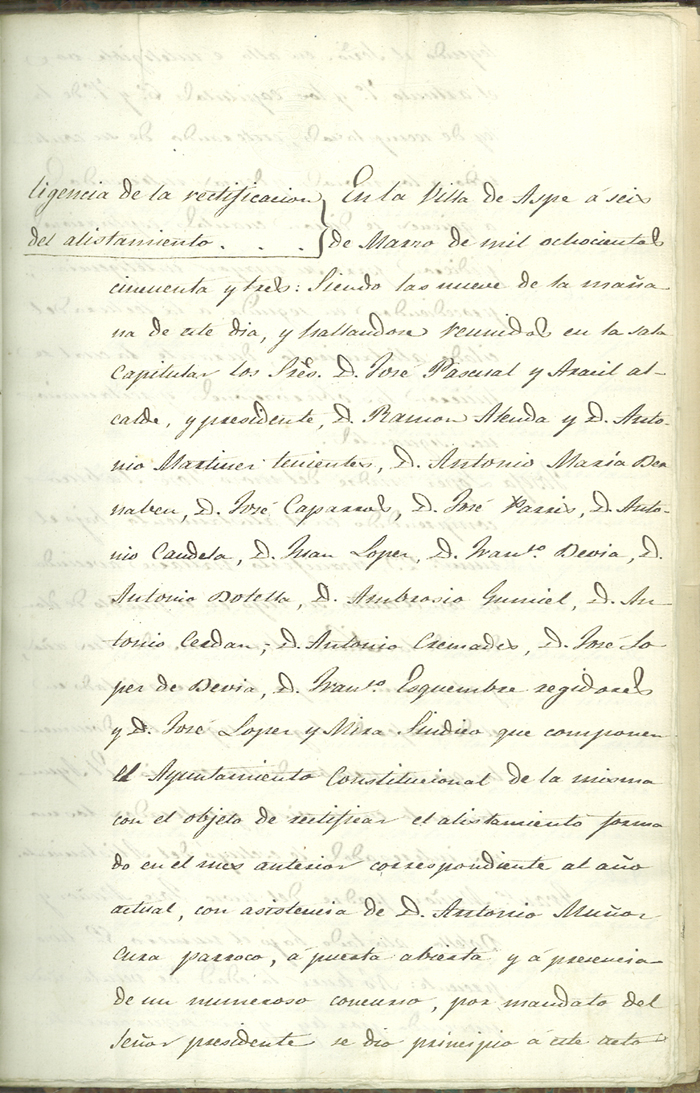 ligencia de la rectificacion
del alistamiento . . .
En la Villa de Aspe á seis
de Marzo de mil ochocientos
cincuenta y tres: Siendo las nueve de la maña
na de este dia, y hallandose reunidos en la sala
capitular los Sres. D. José Pascual y Aracil al-
calde, y presidente, D. Ramon Alenda y D. Anto-
nio Martinez tenientes, D. Antonio Maria Be
nabeu, D. José Caparros, D. José Parris, D. Anto-
nio Candela, D. Juan Lopez, D. Franco. Devia, D.
Antonio Botella, D. Ambrosio Gumiel, D. An-
tonio Cerdan, D. Antonio Cremades, D. José Lo-
pez de Devia, D. Franco. Esquembre regidores
y D. José Lopez y Mira Sindico que componen
el Ayuntamiento Constitucional de la misma
con el objeto de rectificar el alistamiento forma
do en el mes anterior correspondiente al año
actual, con asistencia de D. Antonio Muñoz
cura parroco, á puerta abierta y á presencia
de un numeroso concurso, por mandato del
Señor presidente se dio principio á este acto